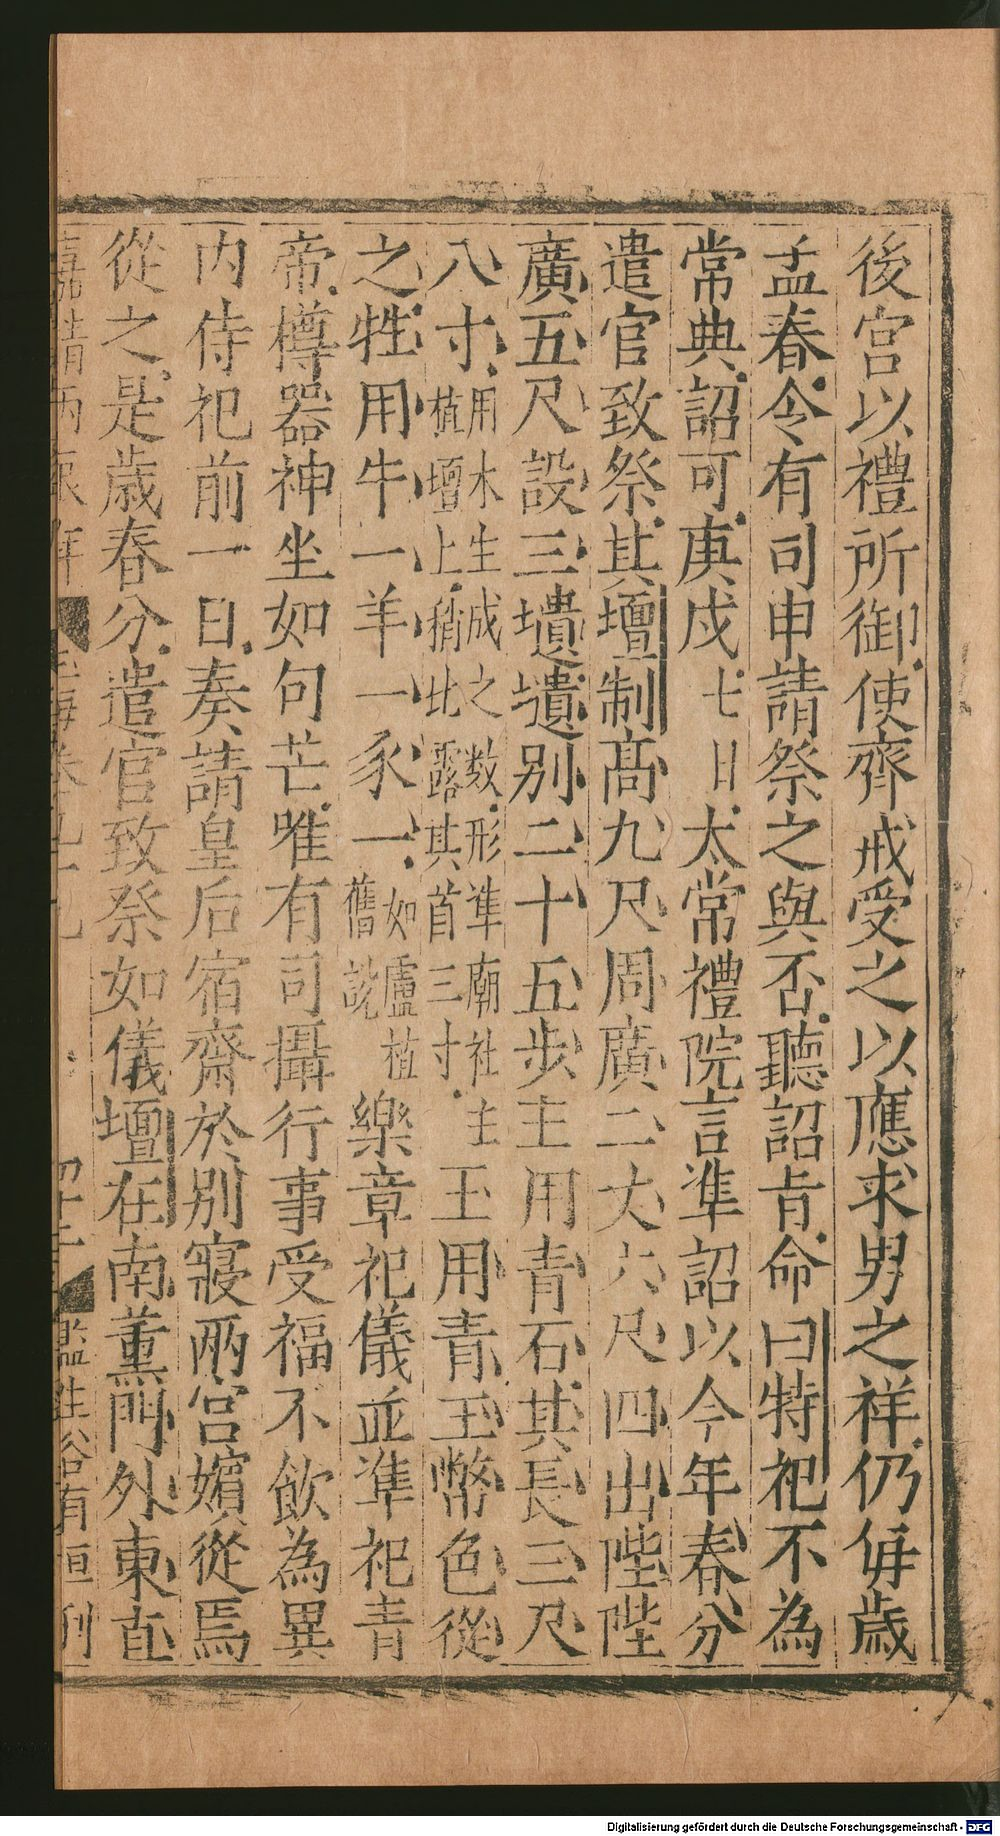 後宮以禮所御使齊戒受之以應求男之祥仍每歲
孟春令有司申請祭之與否聽詔旨命曰特祀不為
常典詔可庚戌七日太常禮院言準詔以今年春分
遣官致祭其壇制高九尺周廣二丈六尺四出陛陛
廣五尺設三壝壝别二十五步主用青石其長三尺
八寸用木生成之数形準廟社主植壇上稍北露其首三寸玉用青玉幣色從
之牲用牛一羊一豕一如盧植舊說樂章祀儀並準祀青
帝樽器神坐如句芒唯有司攝行事受福不飲為異
内侍祀前一日奏請皇后宿齋於别寢兩宫嬪從焉
從之是歲春分遣官致祭如儀壇在南薫門外東直
嘉靖丙辰年 玉海卷九十九 四十二 監生谷有恒刊
Digitalisierung gefördert durch die Deutsche Forschungsgemeinschaft - DFG